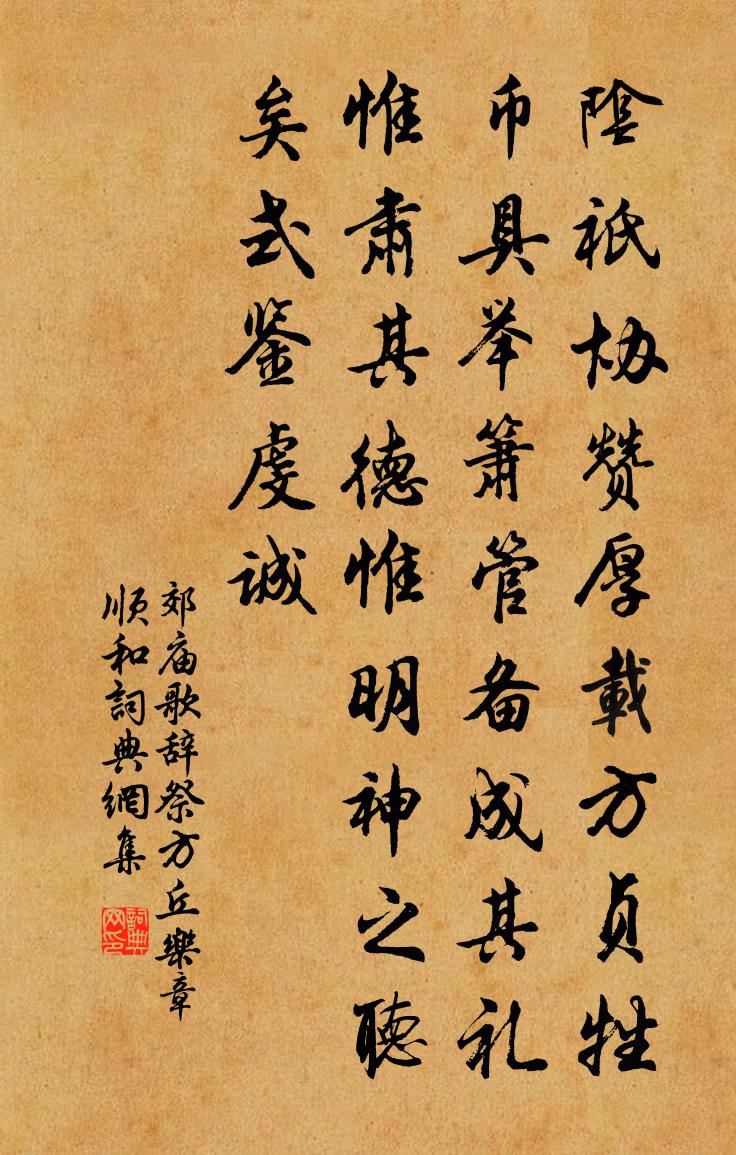 陰祇协赞厚載方贞牲
币具举箫管备成其礼
惟肃其德惟惟明神之聽
矣式鉴虔诚
郊庙歌辞祭方丘樂章
順和詞典網集
詞典
网印